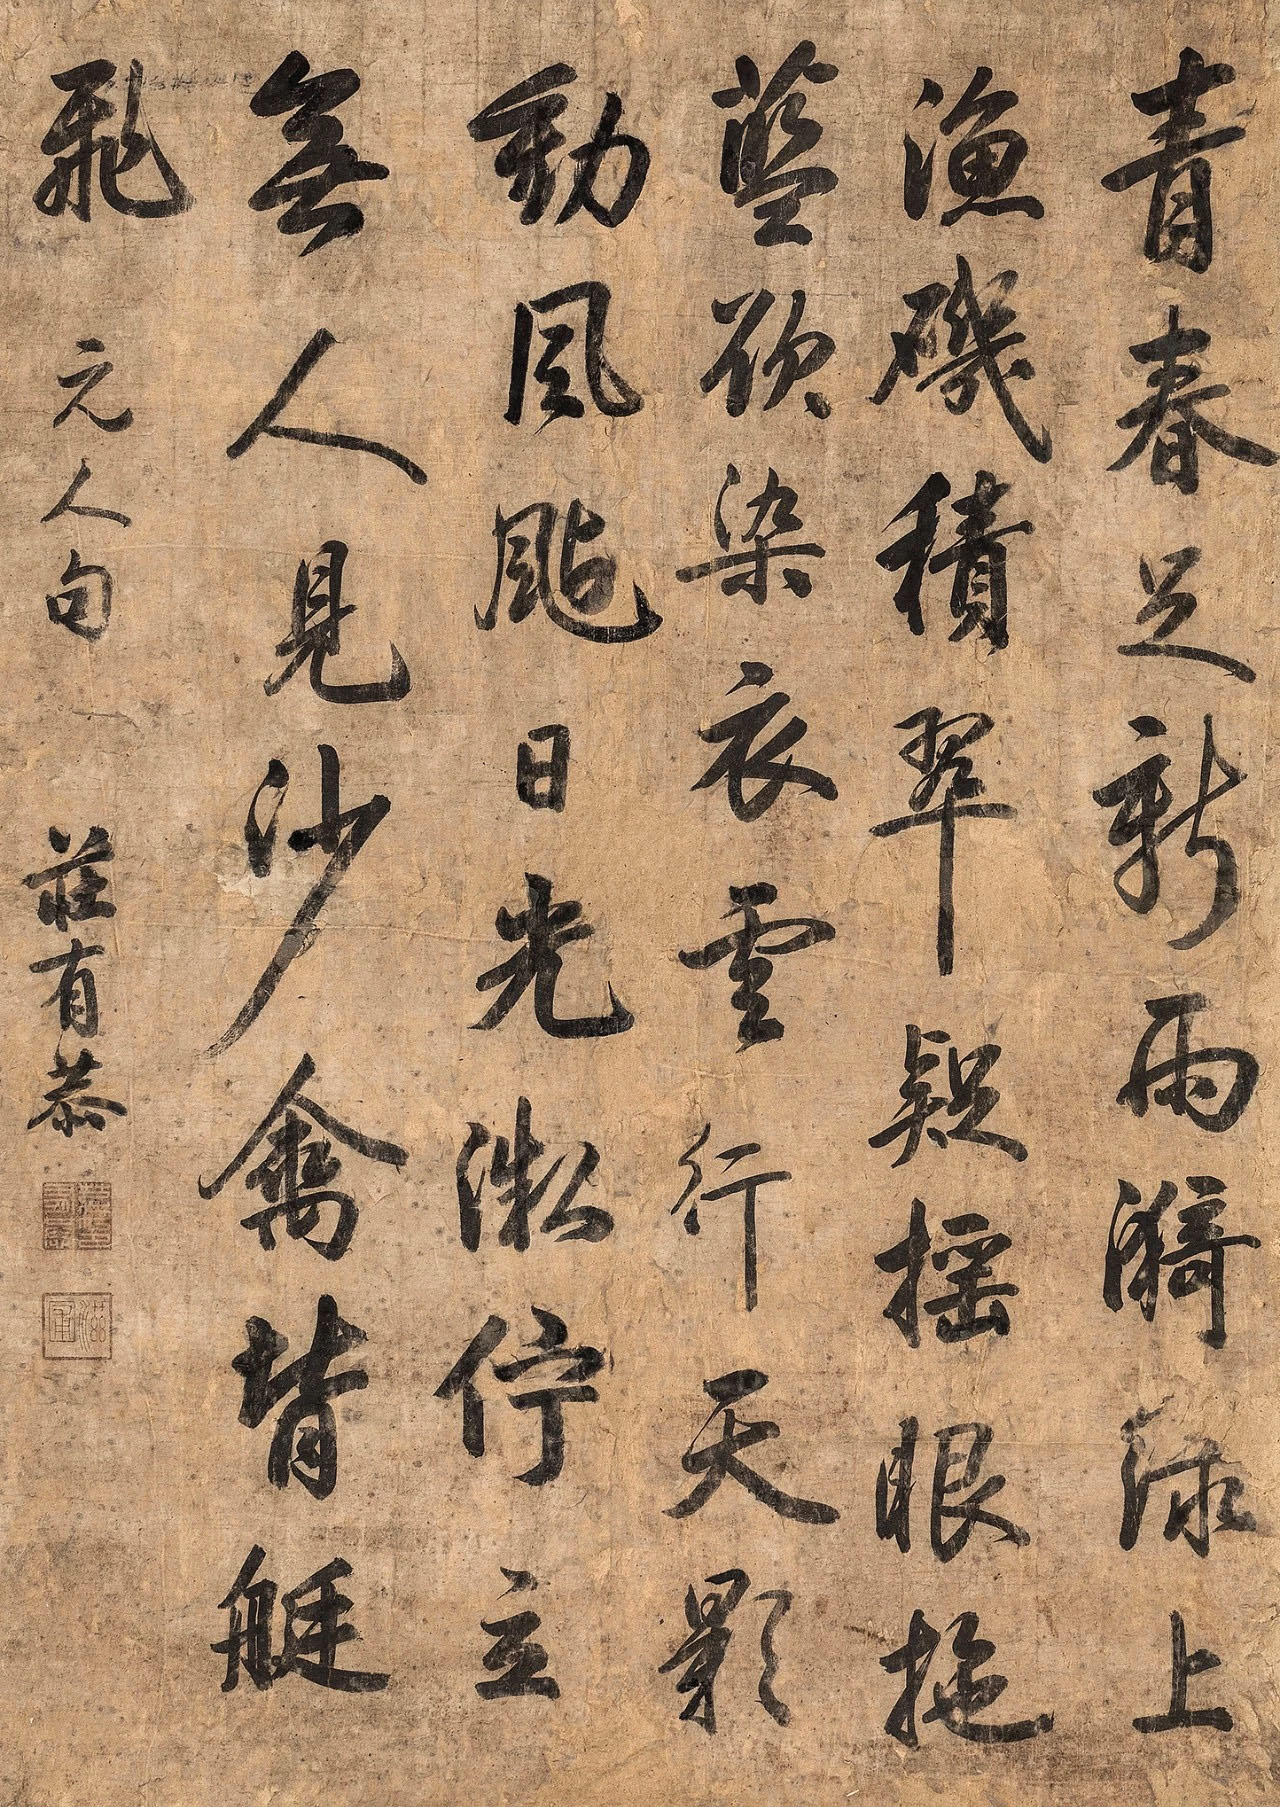 青春足新雨漪渌上
漁磯積翠疑摇眼拖
藍欲染衣雲行天影
動風颭日光澂佇立
無人見沙禽背艇
飛
元人句
莊有恭